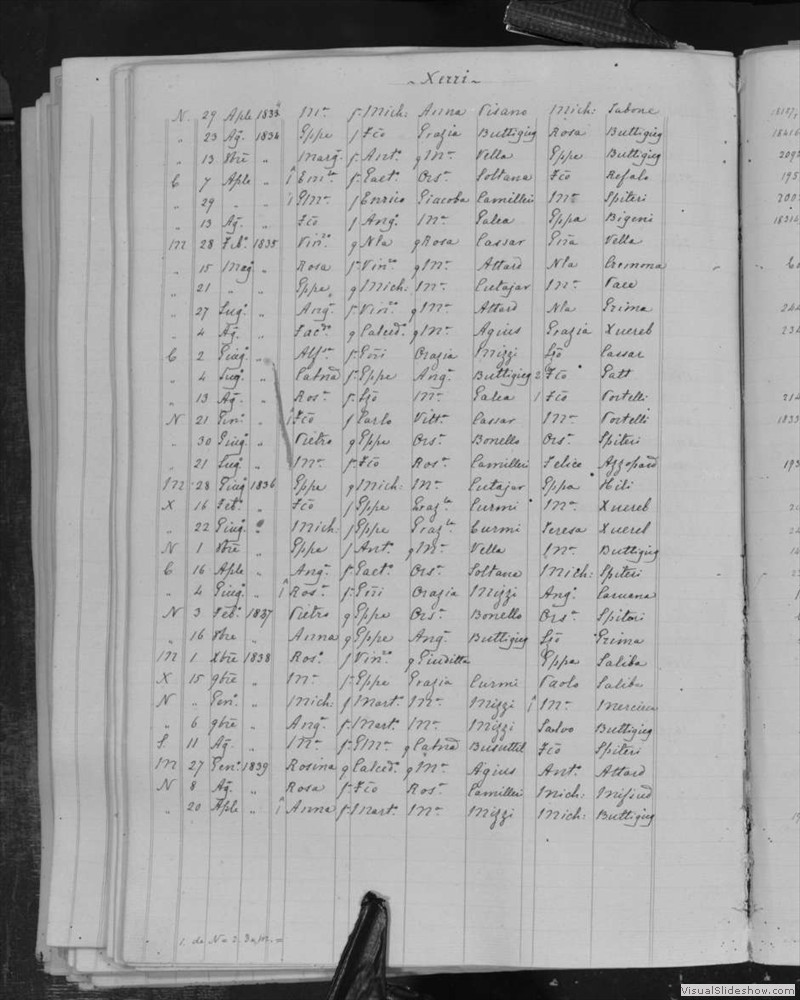 ~ Xerri ~
N. 29 Aple 1833 Ma f. Mich: Anna Pisano Mich: Sabone
„ 23 Ag. 1834 Gppe f Fco Grazia Buttigieg Rosa Buttigieg
„ 13 8bre „ Marg. f. Ant. q Ma Vella Gppe Buttigieg
C 7 Aple „ f. Gaet. Ors. Soltana Fco Refalo
„ 29 „ „ GMa f Enrico Giacoba Camilleri Ma Spiteri
„ 13 Ag. „ Fco f Ang. Ma Galea Gppa Bigeni
M 28 Feb. 1835 Vin. q Nla q Rosa Cassar Vella
„ 15 Mag „ Rosa f. Vin. q Ma Attard Nla Cremona
„ 21 „ „ Gppe q Mich: Ma Cutajar Ma Pace
„ 27 Lug. „ Ang. f. Vin. q Ma Attard Nla Grima
„ 4 Ag. „ q Calced. q Ma Agius Grazia Xuereb
C 2 Giug. „ f. Gni Orazia Mizzi Cassar
„ 4 Lug. „ Catna f. Gppe Ang. Buttigieg 2 Fco Gatt
„ 13 Ag. „ Ros. f. Ma Galea 1 Fco Portelli
N 21 Gen. „ 1 Fco f Carlo Vitt. Cassar Ma Portelli
„ 30 Giug. „ Pietro q Gppe Ors. Bonello Ors. Spiteri
„ 21 Lug. „ Ma f. Fco Ros. Camilleri Felice Azzopard
M 28 Giug 1836 Gppe q Mich: Ma Cutajar Gppa Hili
X 16 Feb. „ Fco f Gppe Graz. Curmi Ma Xuereb
„ 22 Giug. Mich: f Gppe Graz. Curmi Teresa Xuereb
N 1 Xbre „ Gppe f Ant. q Ma Vella Ma Buttigieg
C 16 Aple „ Ang. f. Gaet. Ors. Soltana Mich: Spiteri
„ 4 Giug. „ 1 Ros. f. Gni Orazia Mizzi Ang. Caruana
N 3 Feb. 1837 Pietro q Gppe Ors. Bonello Ors. Spiteri
„ 16 „ Anna q Gppe Ang. Buttigieg Grima
M 1 Xbre 1838 Ros. f Vin. q Giuditta Gppa Saliba
X 15 9bre „ Ma f. Gppe Grazia Curmi Paolo Saliba
N „ Gen. „ Mich: f Mart. Ma Mizzi 1 Ma Mercieca
„ 6 9bre „ Ang. f. Mart. Ma Mizzi Salvo Buttigieg
S. 11 Ag. „ Ma f. GMa q Catna Busuttil Fco Spiteri
M 27 Gen. 1839 Rosina q Calced. q Ma Agius Ant. Attard
N 8 Ag. „ Rosa f. Fco Ros. Camilleri Mich: Mifsud
„ 20 Aple „ 1 Anna f. Mart. Ma Mizzi Mich: Buttigieg
VisualSlideshow.com